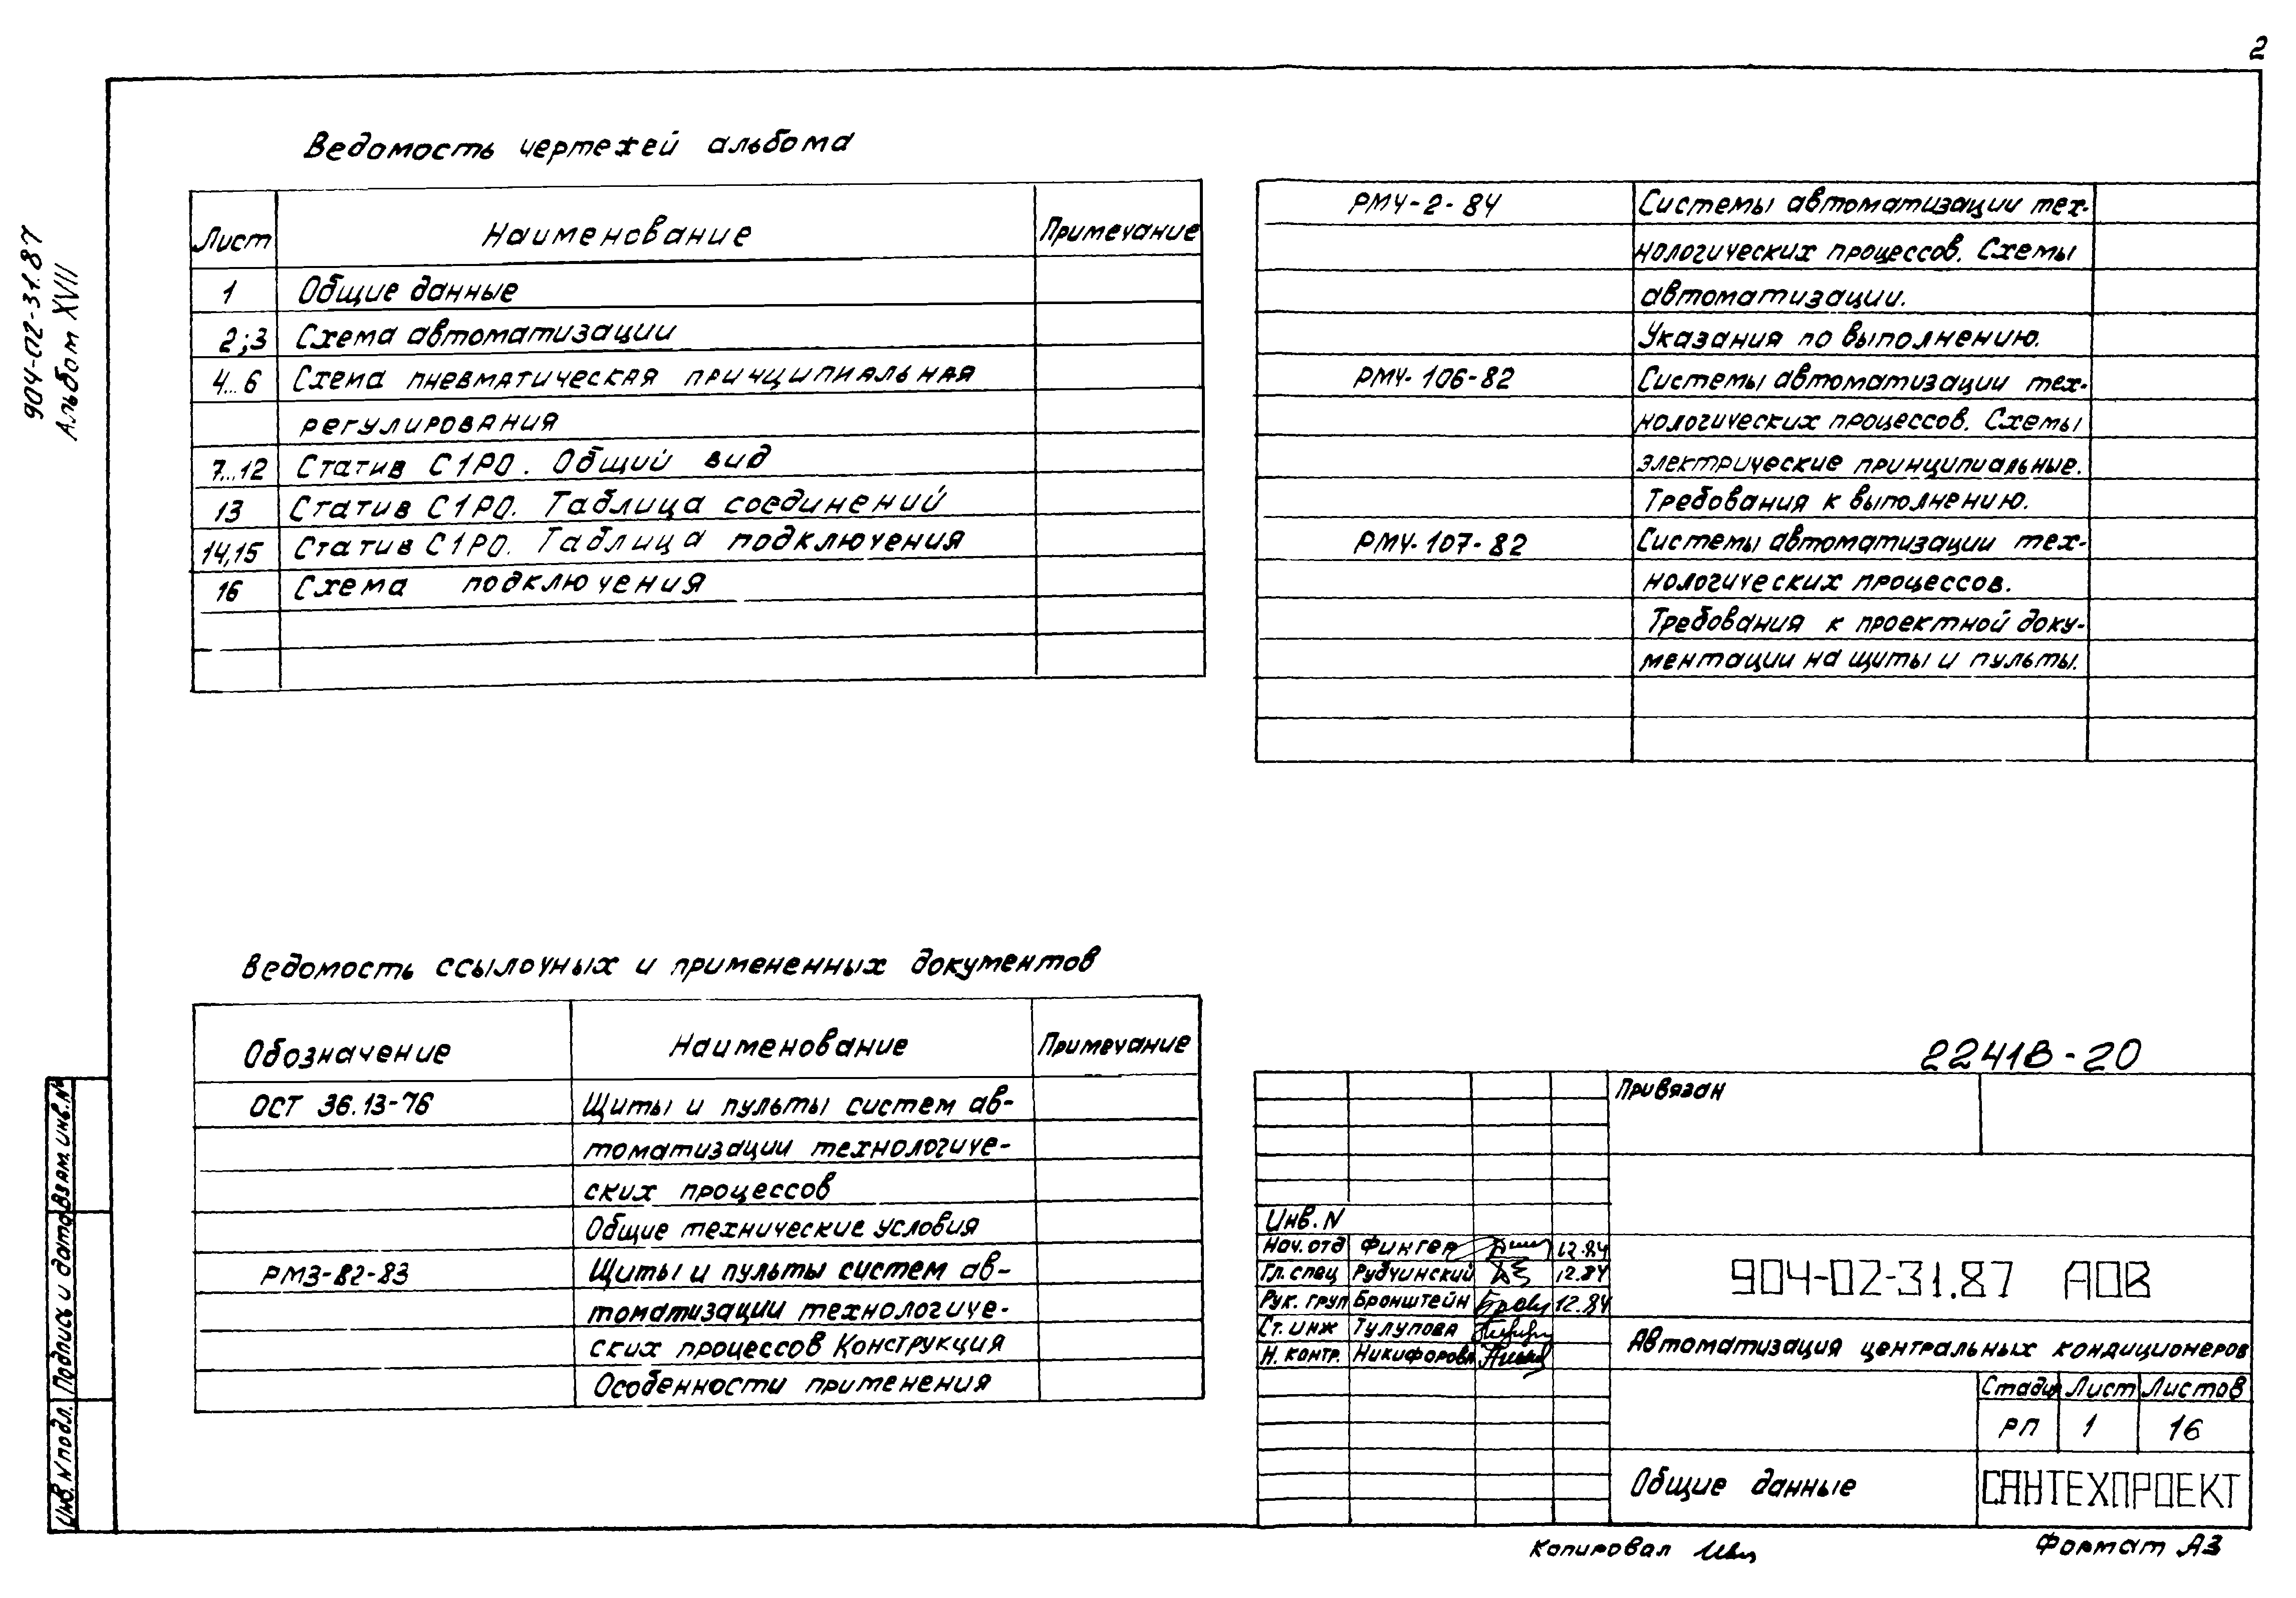 2
904-02-31.87
Альбом XVII
Ведомость чертежей альбома
Лист Наименование Примечание
1 Общие данные
2;3 Схема автоматизации
4...6 Схема пневматическая принципиальная
регулирования
7...12 Статив С1РО. Общий вид
13 Статив С1РО. Таблица соединений
14,15 Статив С1РО. Таблица подключения
16 Схема подключения
РМ4-2-84 Системы автоматизации тех-
нологических процессов. Схемы
автоматизации.
Указания по выполнению.
РМ4-106-82 Системы автоматизации тех-
нологических процессов. Схемы
электрические принципиальные.
Требования к выполнению.
РМ4-107-82 Системы автоматизации тех-
нологических процессов.
Требования к проектной доку-
ментации на щиты и пульты.
Ведомость ссылочных и примененных документов
Обозначение Наименование Примечание
ОСТ 36.13-76 Щиты и пульты систем ав-
томатизации технологиче-
ских процессов
Общие технические условия
РМ3-82-83 Щиты и пульты систем ав-
томатизации технологиче-
ских процессов Конструкция
Особенности применения
22418-20
Привязан
Инв. N
Нач. отд Фингер 12.84
Гл. спец Рубчинский 12.84
Рук. груп Бронштейн 12.84
Ст. инж Тулупова
Н. контр. Никифорова
904-02-31.87 АОВ
Автоматизация центральных кондиционеров
Стадия Лист Листов
РП 1 16
Общие данные
САНТЕХПРОЕКТ
Копировал
Формат А3
Инв. N подл. Подпись и дата Взам. инв. N